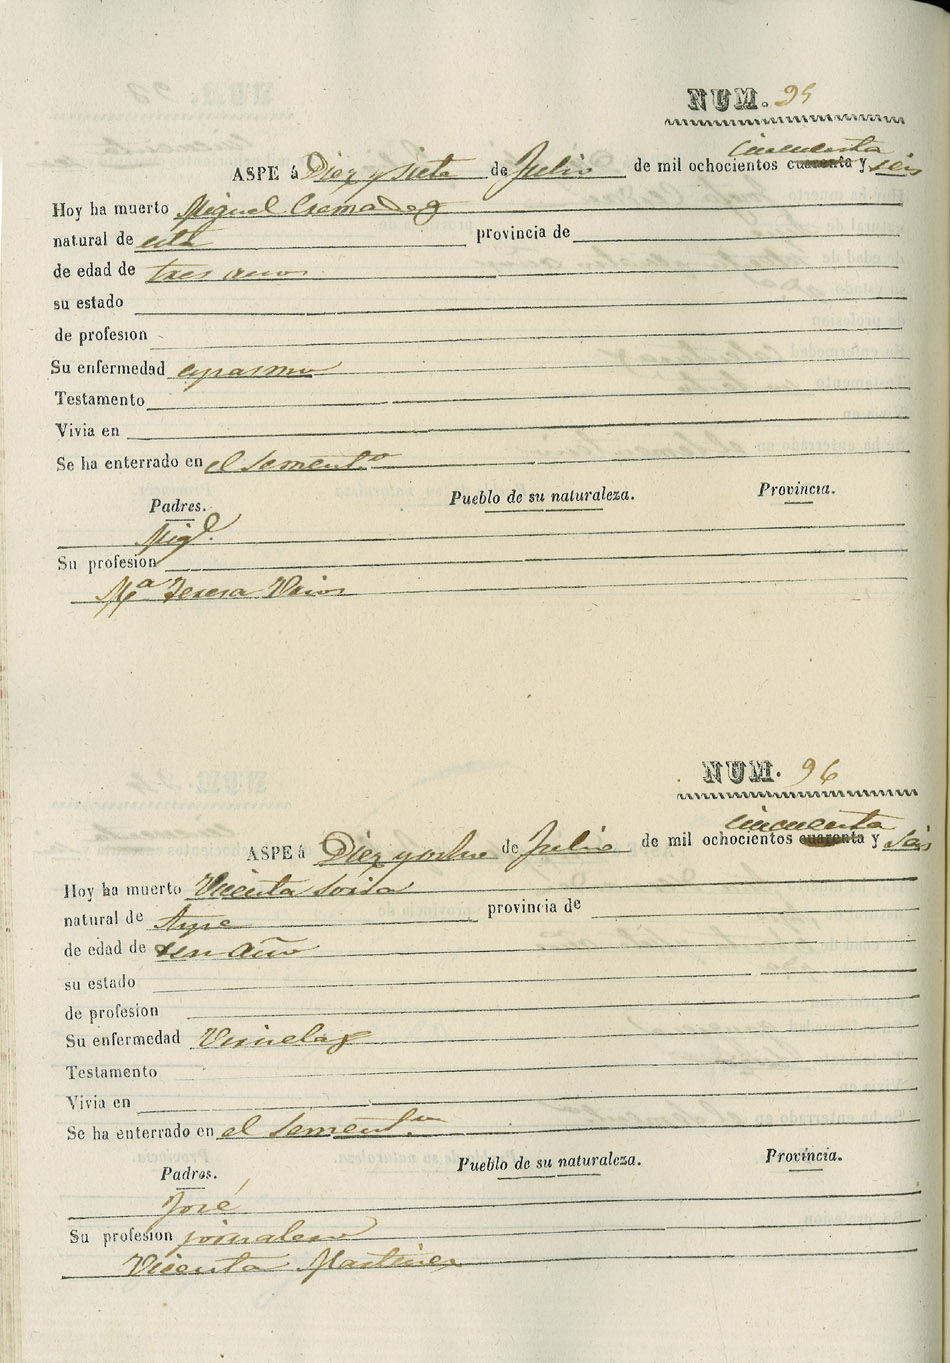 NUM. 95
cincuenta
ASPE á Diez y siete de Julio de mil ochocientos cuarenta y seis
Hoy ha muerto Miguel Cremades
natural de esta provincia de
de edad de tres años
su estado
de profesion
Su enfermedad espasmo
Testamento
Vivia en
Se ha enterrado en el sement.o
Padres. Pueblo de su naturaleza. Provincia.
Migl.
Su profesion
Ma Teresa
NUM. 96
cincuenta
ASPE á Diez y ocho de Julio de mil ochocientos cuarenta y seis
Hoy ha muerto Vicenta Soria
natural de Aspe provincia de
de edad de un año
su estado
de profesion
Su enfermedad Viruelas
Testamento
Vivia en
Se ha enterrado en el sement.o
Padres. Pueblo de su naturaleza. Provincia.
José
Su profesion jornalero
Vicenta Martinez